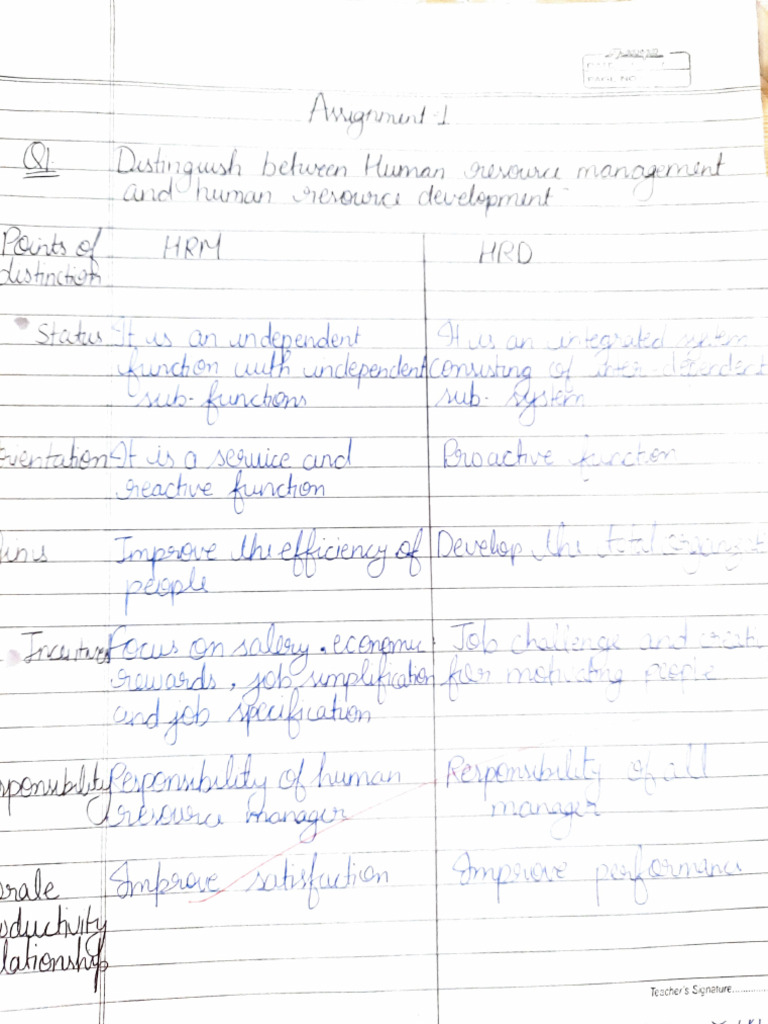 DATE
PAGE NO.
Assignment-1
Q1. Distinguish between Human resource management
and human resource development
Points of distinction HRM HRD
Status It is an independent It is an integrated system
function with independent consisting of inter-dependent
sub-functions sub-system
It is a service and Proactive function
reactive function
Improve the efficiency of Develop the total
people
Incentives Focus on salery, economic Job challenge and
rewards, job simplification for motivating people
and job specification
Responsibility of human Responsibility of all
resource manager manager
Improve satisfaction Improve
Teacher's Signature............